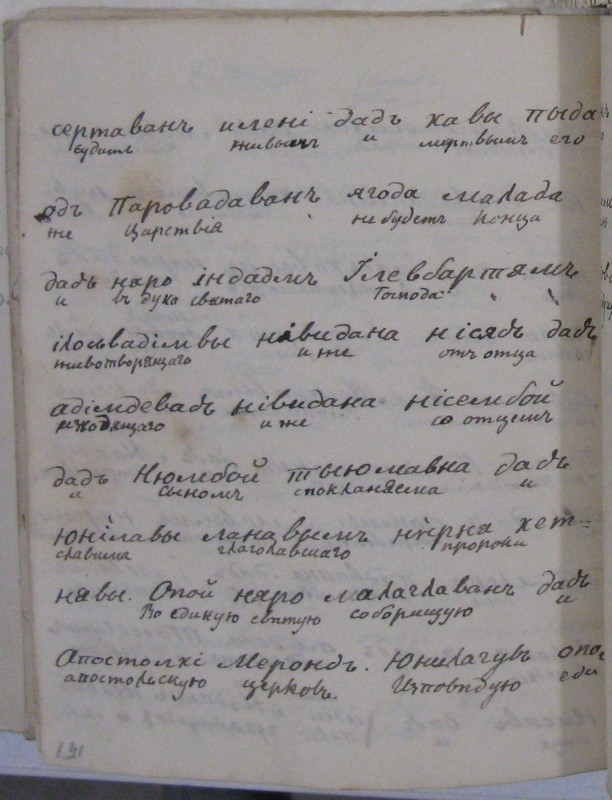 сертаванъ имені дадъ хавы пыда
судити живымъ и мертвымъ его
ядъ Паровадаванъ ягода малада
же Царствія не будетъ конца
дадъ няро індадмъ Ілевбартямъ
и въ духа святаго Господа
ілосьвадімвы нівидана нісядъ дадъ
животворящаго иже отъ отца
адімдевадъ нівидана нісембой
исходящаго иже со отцемъ
дадъ Нюмбой тыюмавна дадъ
и сыномъ спокланяема и
юнілавы ланавымъ хет=
славима глаголавшаго пророки
нявы. Опой няро малаглаванъ дадъ
Во единую святую соборную и
Апостолхі Мерондъ. Юнилагувъ опо
апостольскую церковь. Исповѣдую еди